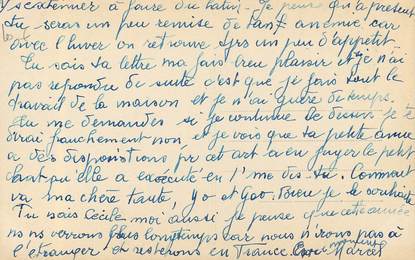 s'exterminer à faire du latin. Je pense qu'à présent
tu seras un peu remise de ton anémie car
avec l'hiver on retrouve tjrs un peu d'appétit
Tu sais ta lettre m'a fais bien plaisir et si je n'ai
pas répondu de suite c'est que je fais tout le
travail de la maison et je n'ai guère de temps.
Tu me demandes si je continue le dessin je te
dirai franchement non, et je vois que ta petite amie
a des dispositions pr cet art à en juger le petit
chat qu'elle a exécuté en l'me dis-tu. Comment
va ma chère tante, Yo et Geo. Bien je le souhaite
Tu sais Cécile moi aussi je pense que cette année
ns ns verrons plus longtemps car nous n'irons pas à
l'étranger et resterons en France. monsieur Marcel